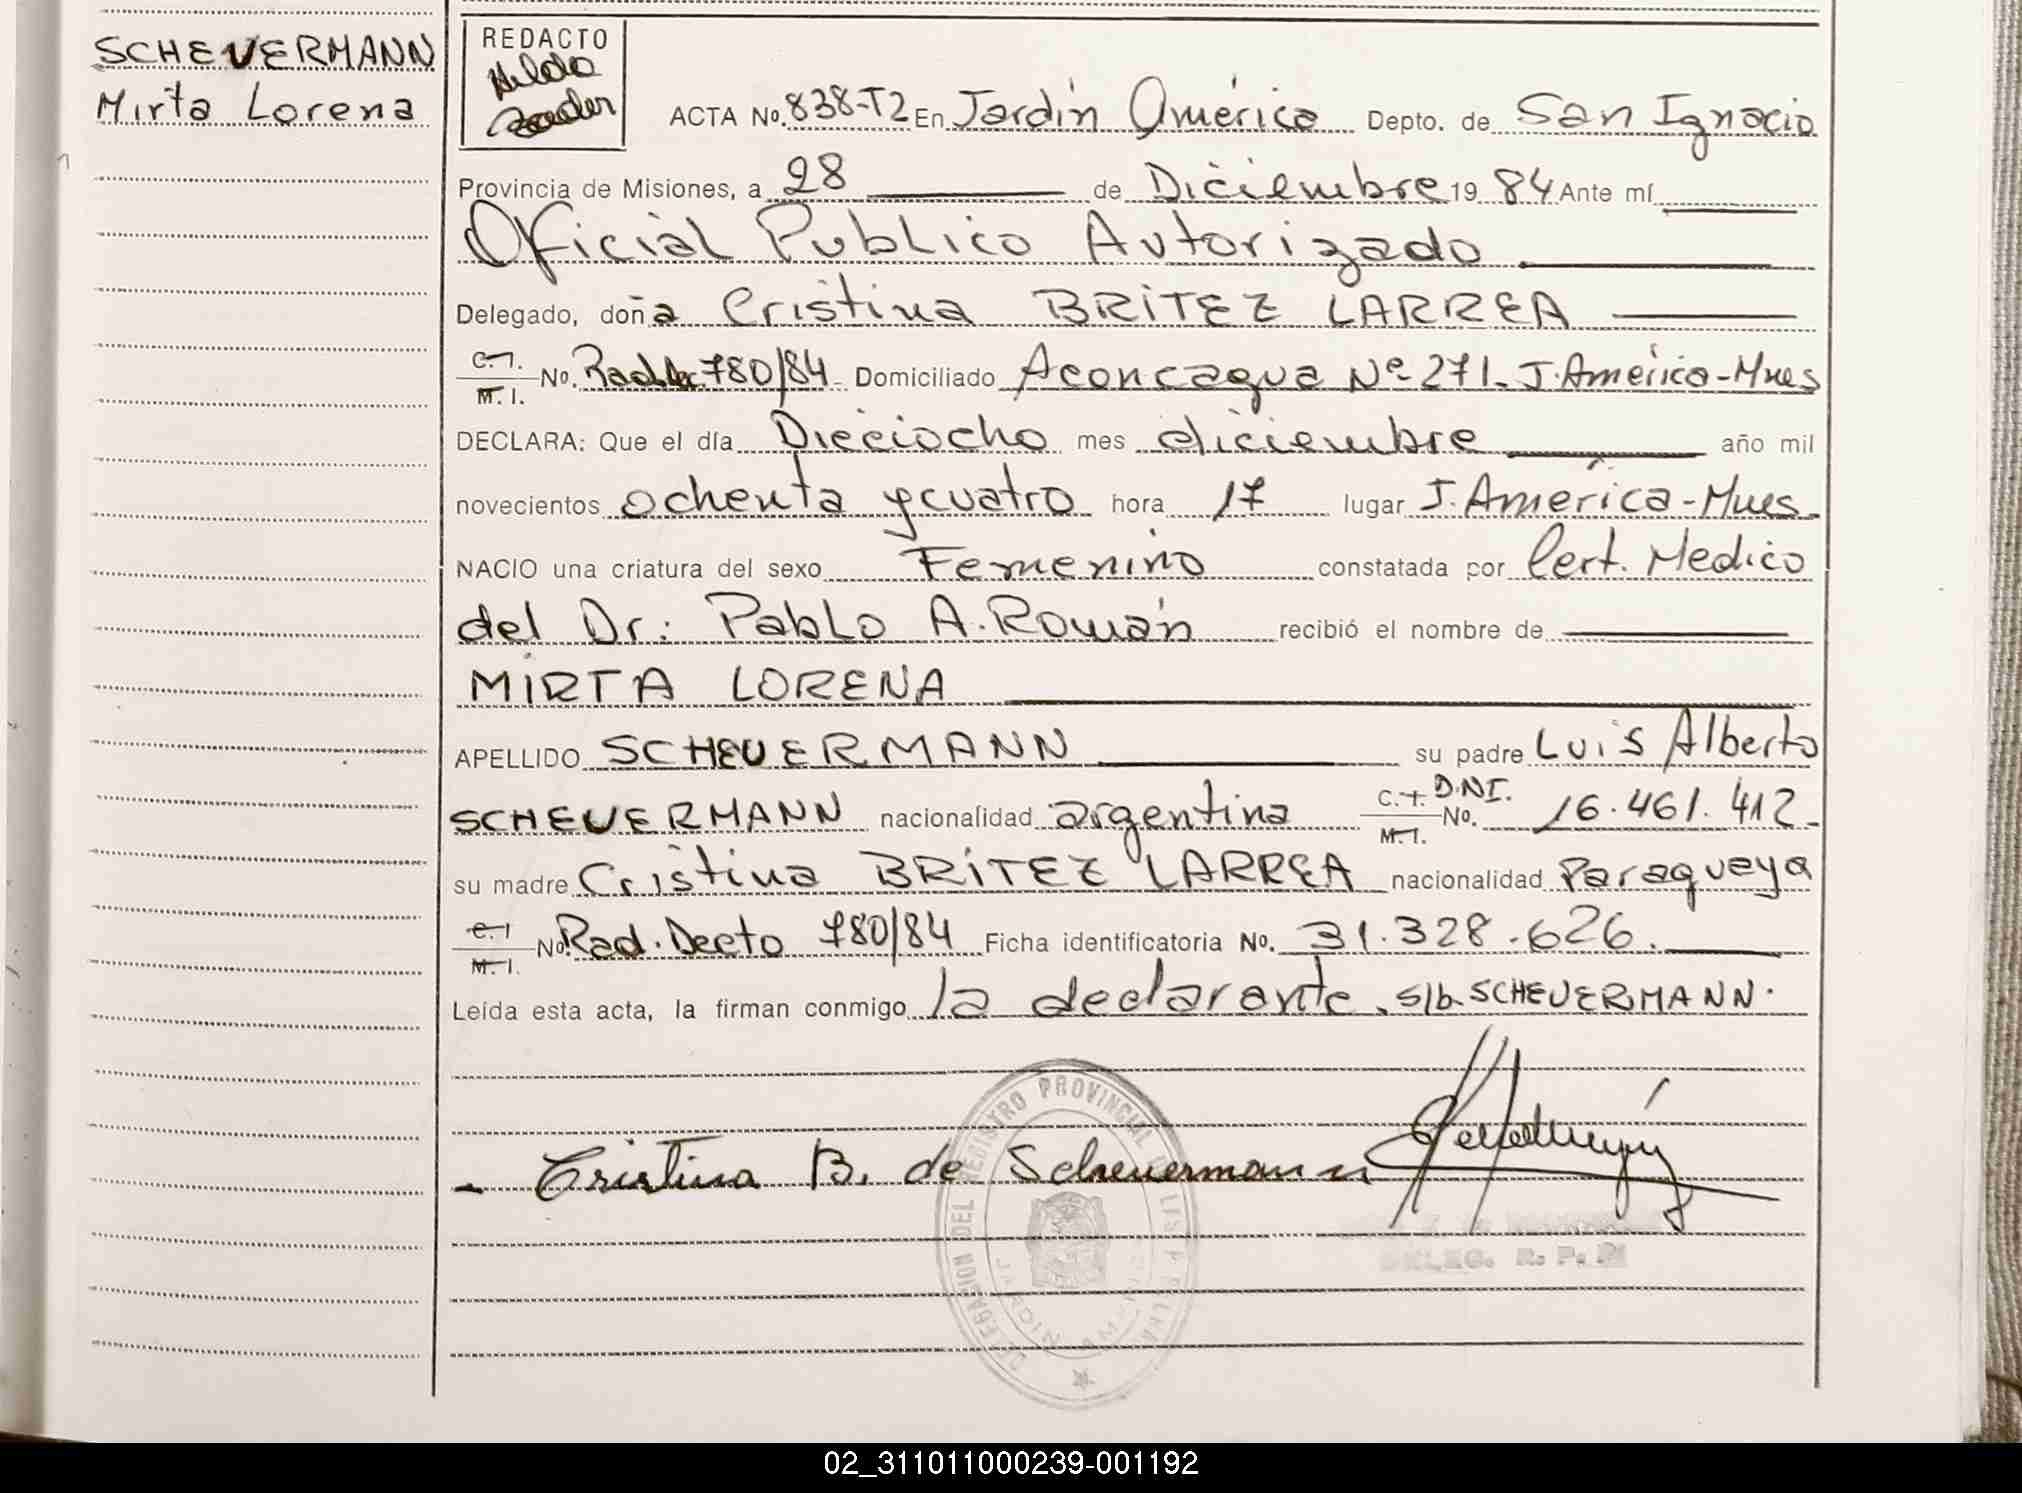 SCHEUERMANN
Mirta Lorena
REDACTO
Hilda
ACTA No. 838-T2 En Jardín América Depto. de San Ignacio
Provincia de Misiones, a 28 de Diciembre 19 84 Ante mí
Oficial Publico Autorizado
Delegado, doña Cristina BRITEZ LARREA
C.I. M.I. No. Rad. 780/84 Domiciliado Aconcagua Nº 271. J. América-Mnes
DECLARA: Que el día Dieciocho mes diciembre año mil
novecientos ochenta y cuatro hora 17 lugar J. América-Mnes.
NACIO una criatura del sexo Femenino constatada por Cert. Medico
del Dr: Pablo A. Román recibió el nombre de
MIRTA LORENA
APELLIDO SCHEUERMANN su padre Luis Alberto
SCHEUERMANN nacionalidad argentina C.I. M.I. D.N.I. No. 16.461.412-
su madre Cristina BRITEZ LARREA nacionalidad Paraguaya
C.I M.I. No. Rad. Decto 780/84 Ficha identificatoria No. 31.328.626.
Leída esta acta, la firman conmigo la declarante. s/b. SCHEUERMANN.
- Cristina B. de Scheuermann
DELEGACION DEL REGISTRO PROVINCIAL DE LAS P
JARDIN AMERICA
DELEG. R. P. P.
02_311011000239-001192